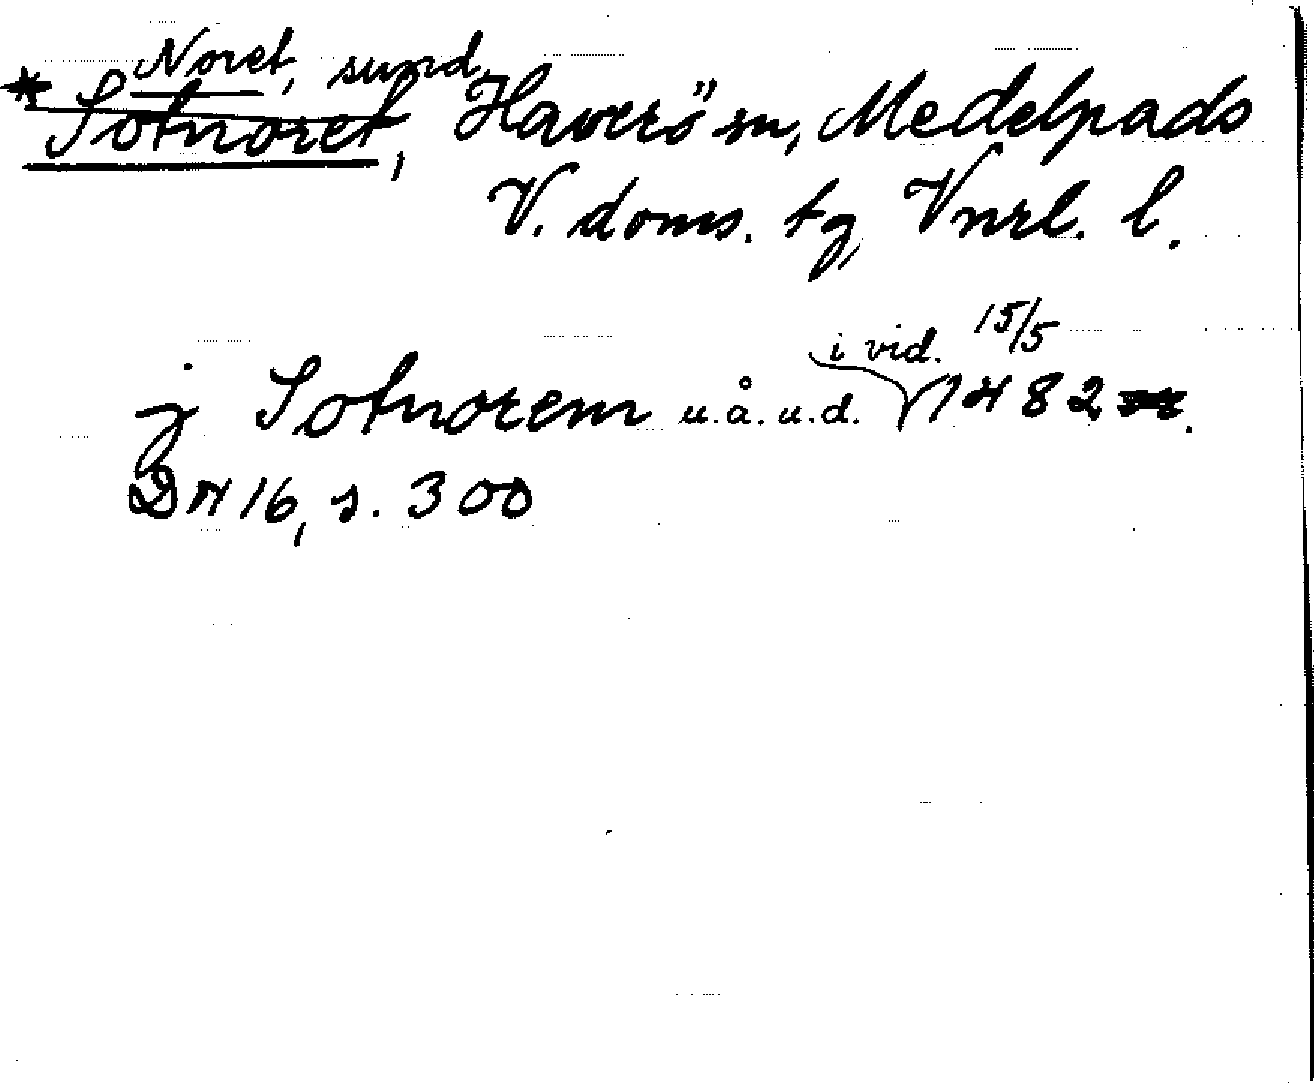 Noret, sund,
*Sotnoret, Haverö sn, Medelpads
V. doms. tg, Vnrl. l.
i vid. 15/5
j Sotnorem u.å.u.d. 1482.
DN 16, s. 300